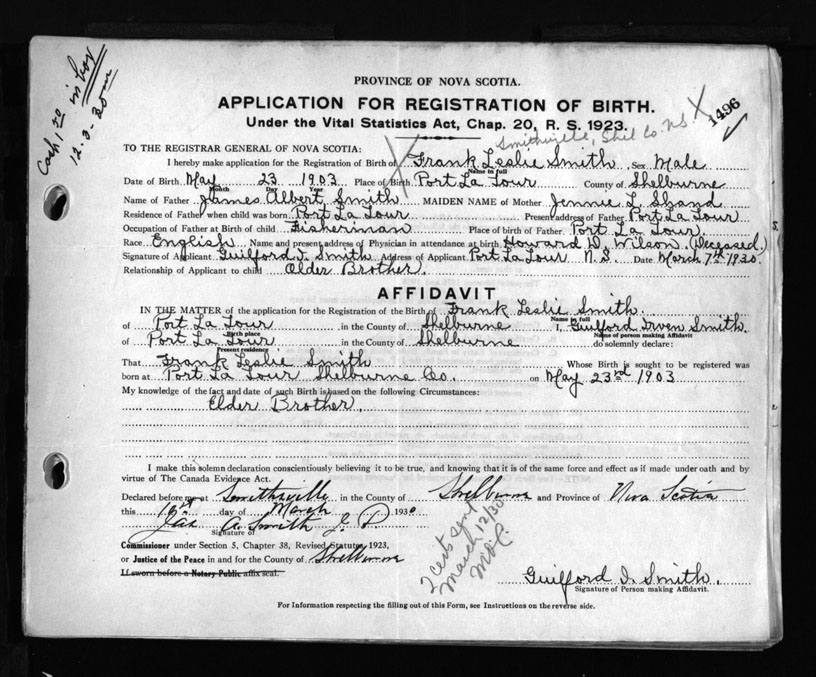 Cash 1 50 in
12-3-30
PROVINCE OF NOVA SCOTIA.
1496
APPLICATION FOR REGISTRATION OF BIRTH.
Under the Vital Statistics Act, Chap. 20, R. S. 1923.
Smithville, Shel Co. N.S. X
TO THE REGISTRAR GENERAL OF NOVA SCOTIA:
I hereby make application for the Registration of Birth of Frank Leslie Smith Sex Male
Name in full
Date of Birth May 23 1903 Place of Birth Port La Tour County of Shelburne
Month Day Year
Name of Father James Albert Smith MAIDEN NAME of Mother Jennie L. Shand
Residence of Father when child was born Port La Tour Present address of Father Port La Tour
Occupation of Father at Birth of child Fisherman Place of birth of Father Port La Tour.
Race English Name and present address of Physician in attendance at birth Howard D. Wilson (Deceased)
Signature of Applicant Guilford I. Smith Address of Applicant Port La Tour N. S. Date March 7th 1930.
Relationship of Applicant to child Older Brother.
AFFIDAVIT
IN THE MATTER of the application for the Registration of the Birth of Frank Leslie Smith.
Name in full
of Port La Tour in the County of Shelburne I, Guilford Irven Smith.
Birth place Name of person making Affidavit
of Port La Tour in the County of Shelburne do solemnly declare:
Present residence
That Frank Leslie Smith Whose Birth is sought to be registered was
born at Port La Tour Shelburne Co. on May 23rd 1903
My knowledge of the fact and date of such Birth is based on the following Circumstances:
Elder Brother.
I make this solemn declaration conscientiously believing it to be true, and knowing that it is of the same force and effect as if made under oath and by
virtue of The Canada Evidence Act.
Declared before me at Smithsville in the County of Shelburne and Province of Nova Scotia
this day of March 1930
Jas A. Smith J. P.
Signature of
Commissioner under Section 5, Chapter 38, Revised Statutes, 1923,
or Justice of the Peace in and for the County of Shelburne
If sworn before a Notary Public affix seal.
2 cert sent
March 12/30
Guilford I. Smith.
Signature of Person making Affidavit.
For Information respecting the filling out of this Form, see Instructions on the reverse side.